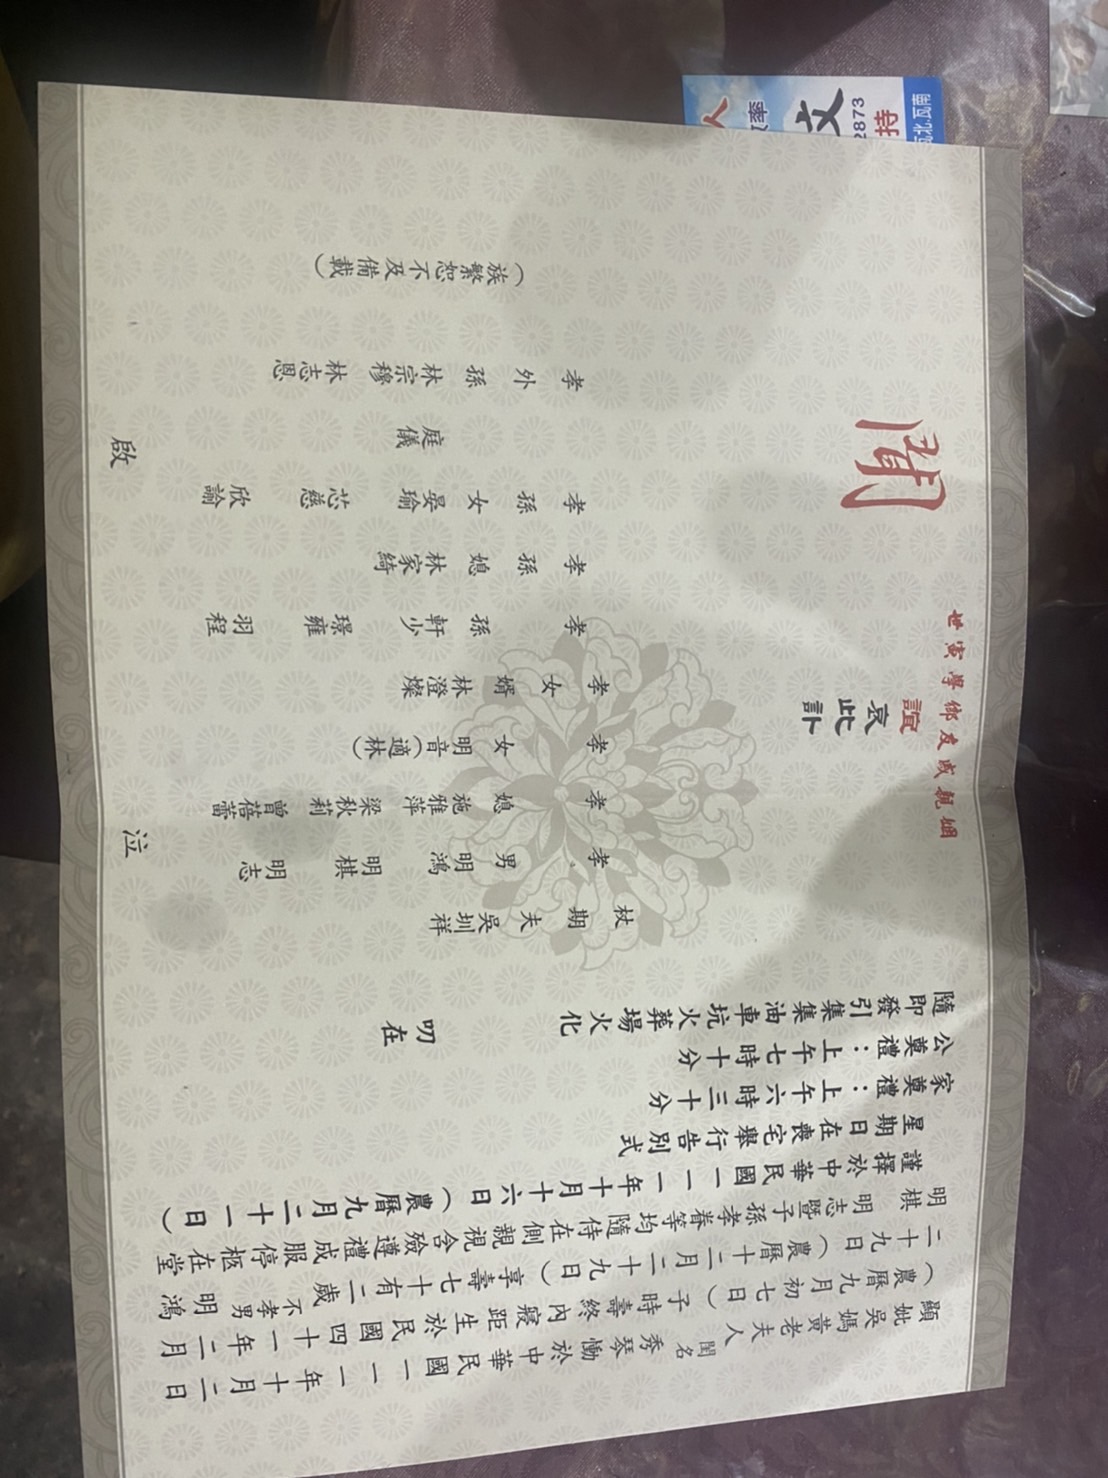 顯妣吳媽黃老夫人 閨名 秀琴 慟於中華民國一一一年十月二日
（農曆九月初七日）子時壽終內寢距生於民國四十一年二月
二十九日（農曆十二月二十九日）享壽七十有二歲 不孝男明鴻
明棋 明志暨子孫孝眷等均隨侍在側親視含殮遵禮成服停柩在堂
謹擇於中華民國一一一年十月十六日（農曆九月二十一日）
星期日在喪宅舉行告別式
家奠禮：上午六時三十分
公奠禮：上午七時十分
隨即發引集集油車坑火葬場火化
叨在
姻親戚友鄉學寅世
誼
哀此訃
聞
杖期夫 吳圳祥
孝男 明鴻 明棋 明志
孝媳 施雅萍 梁秋莉 曾蓓蕾
孝女 明音（適林）
孝女婿 林澄燦
孝孫 軒少 璟雍 羽程
孝孫媳 林家綺
孝孫女 晏瑜 芯慈 欣諭
庭儀
孝外孫 林宗穆 林志恩
（族繁恕不及備載）
泣
啟
文
持
2873
人